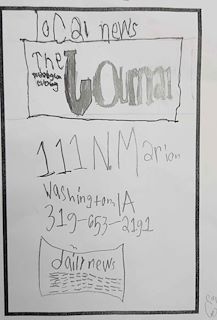 local news
The
Washington
evening
Journal
111 N. Marion
Washington, IA
319-653-2191
daily news